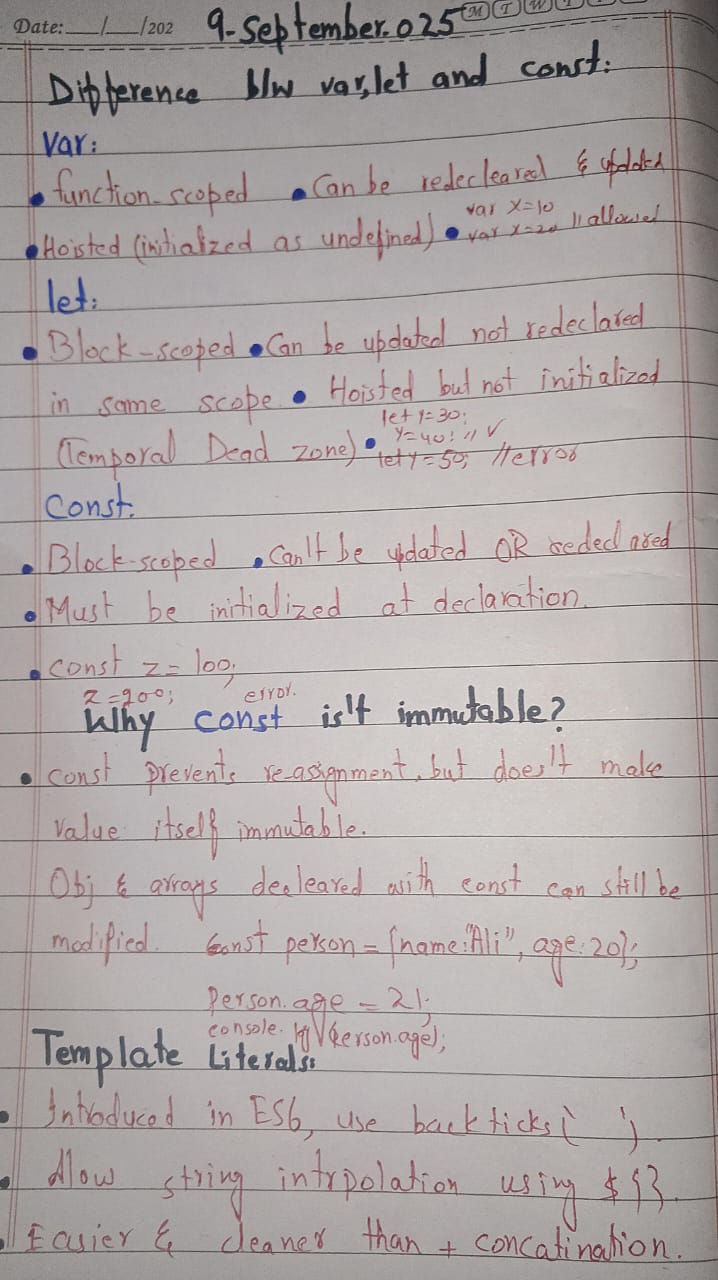 Date: __/__/202 9-September.025 M T W
Difference b/w var, let and const:
Var:
• function-scoped • Can be redecleared & updated
• Hoisted (initialized as undefined) • var x=10
var x=20 // allowed
let:
• Block-scoped • Can be updated not redeclared
in same scope • Hoisted but not initialized
(Temporal Dead zone) • let y=30;
y=40; // ✓
let y=50; // error
Const:
• Block-scoped • Can't be updated OR redeclared
• Must be initialized at declaration.
• const z=100;
z=200; error.
Why const is't immutable?
• const prevents re-assignment, but does't make
value itself immutable.
Obj & arrays decleared with const can still be
modified. const person = {name:"Ali", age:20};
Person.age = 21;
console.log(Person.age);
Template Literals:
• Introduced in ES6, use backticks (` `).
• Allow string intrpolation using ${}.
• Easier & cleaner than + concatination.